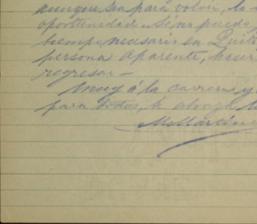 aunque sea para volver, la
oportunidad. Si se puede
tiempo necesario en Quito
persona aparente, hacer
regresar —
Muy á la carrera y
para todos, le abraza
M. Martínez